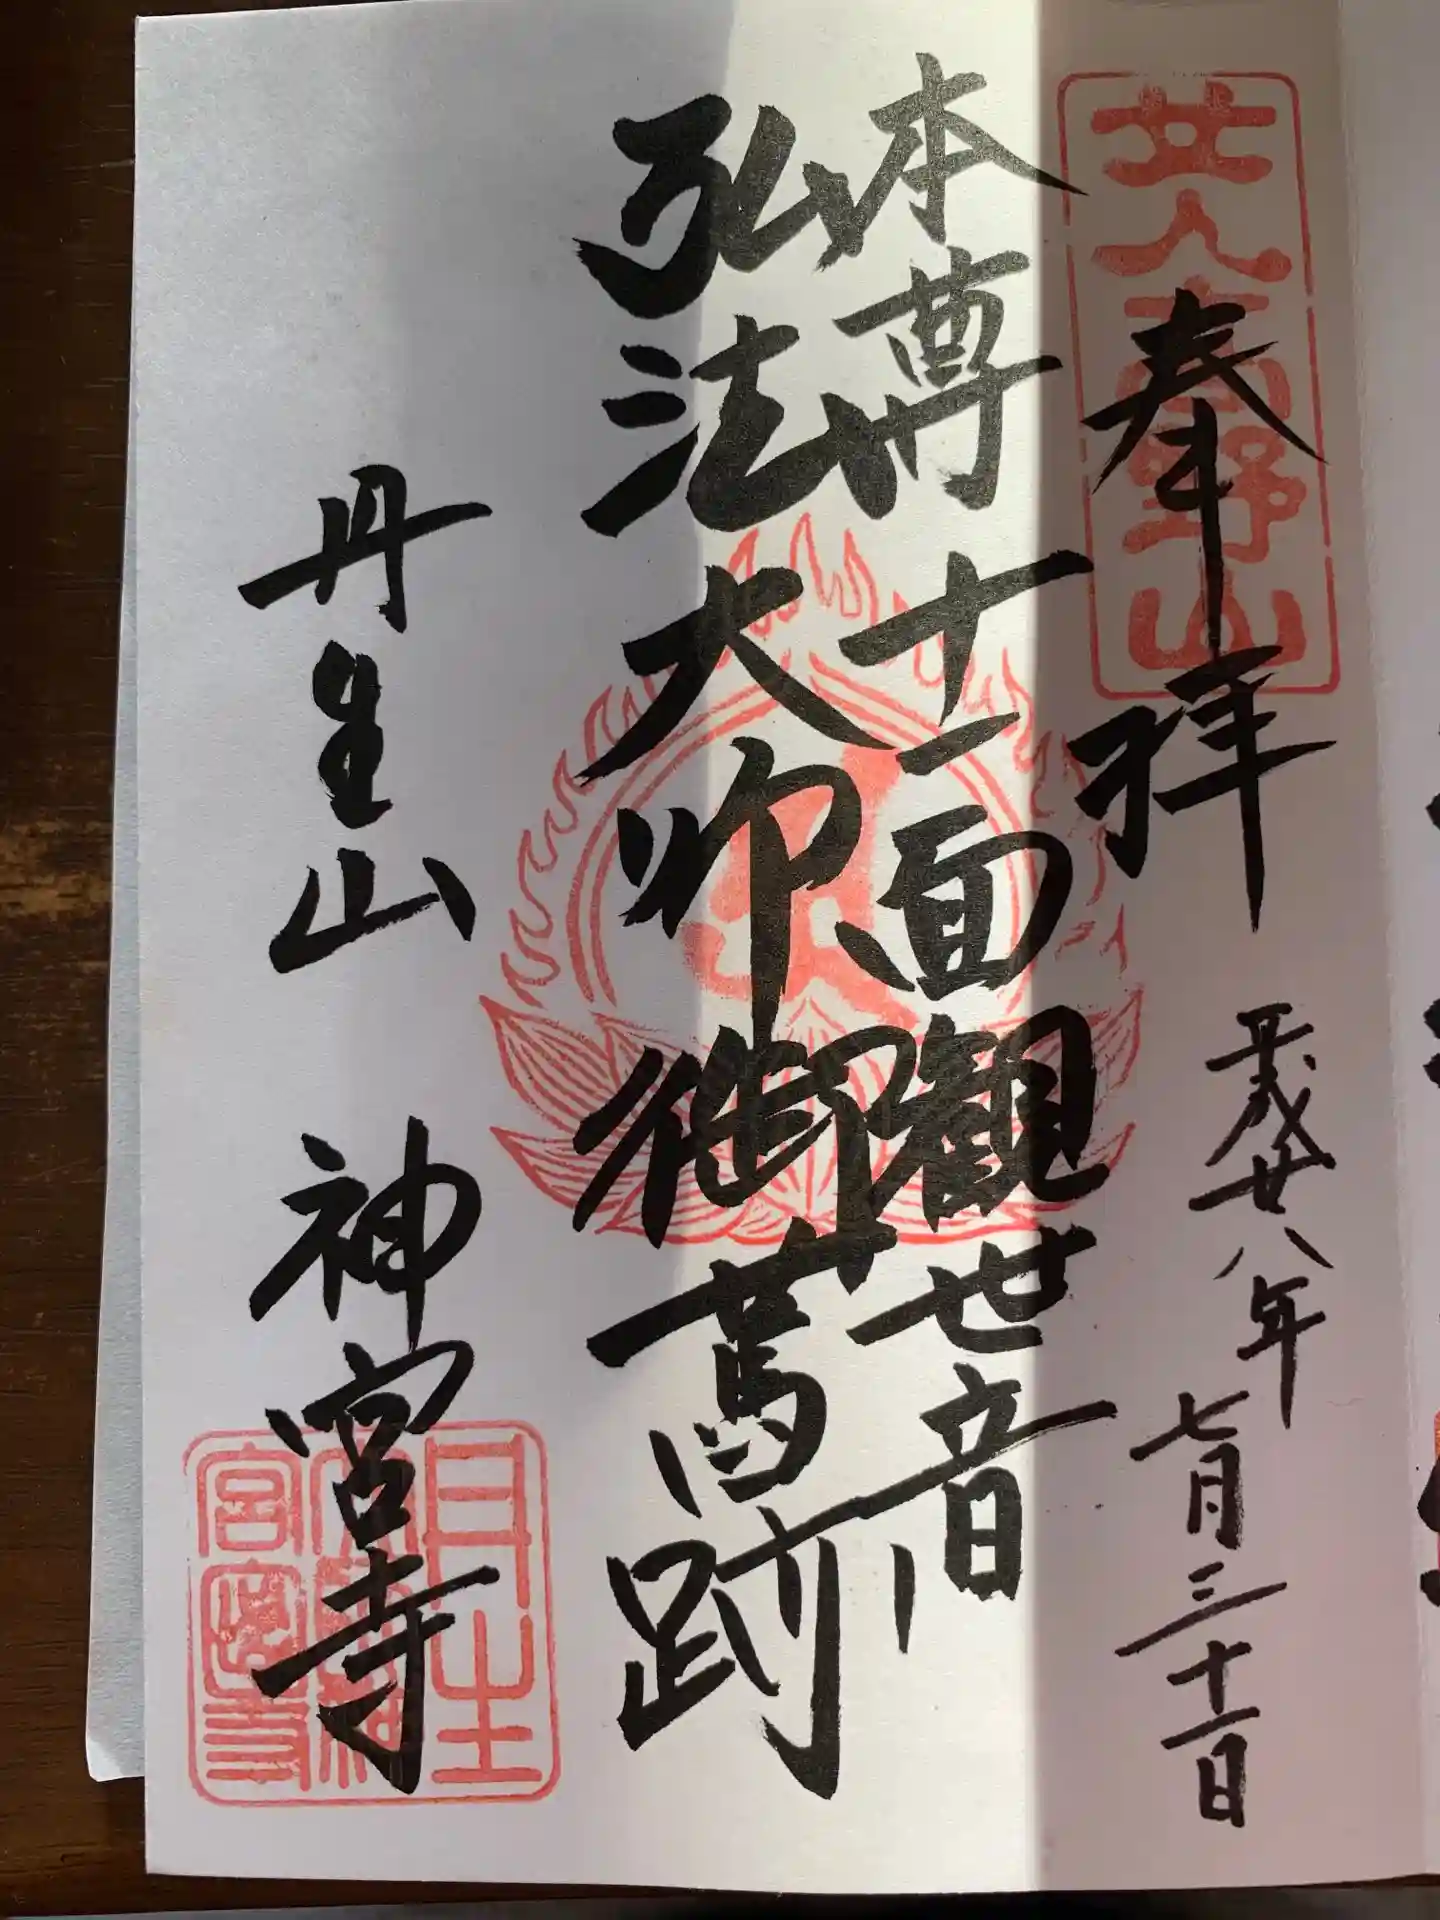 女人高野山
奉拝
平成廿八年
七月三十一日
本尊十一面観世音
弘法大師御旧跡
丹生山 神宮寺
丹生
山神
宮寺